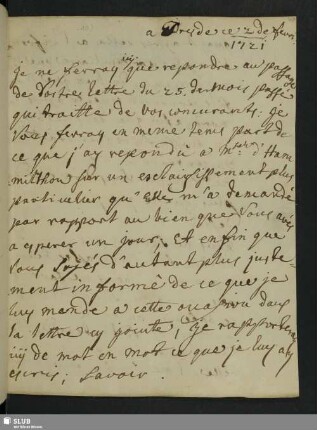 a Dresde ce 2 de fevr:
1721
Je ne ferray icy que repondre au passage
de Vostre lettre du 25. du mois passé
qui traitte de vos concurants: Je
Vous ferray en meme tems part de
ce que j'ay repondu a Mr d'Ham
milthon sur un esclaircissement plus
particulier qu'Elle m'a demandé
par rapport au bien que Vous avés
a esperer un jour; Et enfin que
Vous soyés d'autant plus juste-
ment informé de ce que je
luy mande a cette ouasion dans
la lettre cy jointe, Je rapporteray
icy de mot en mot ce que je luy ay
escris; Savoir.
SLUB